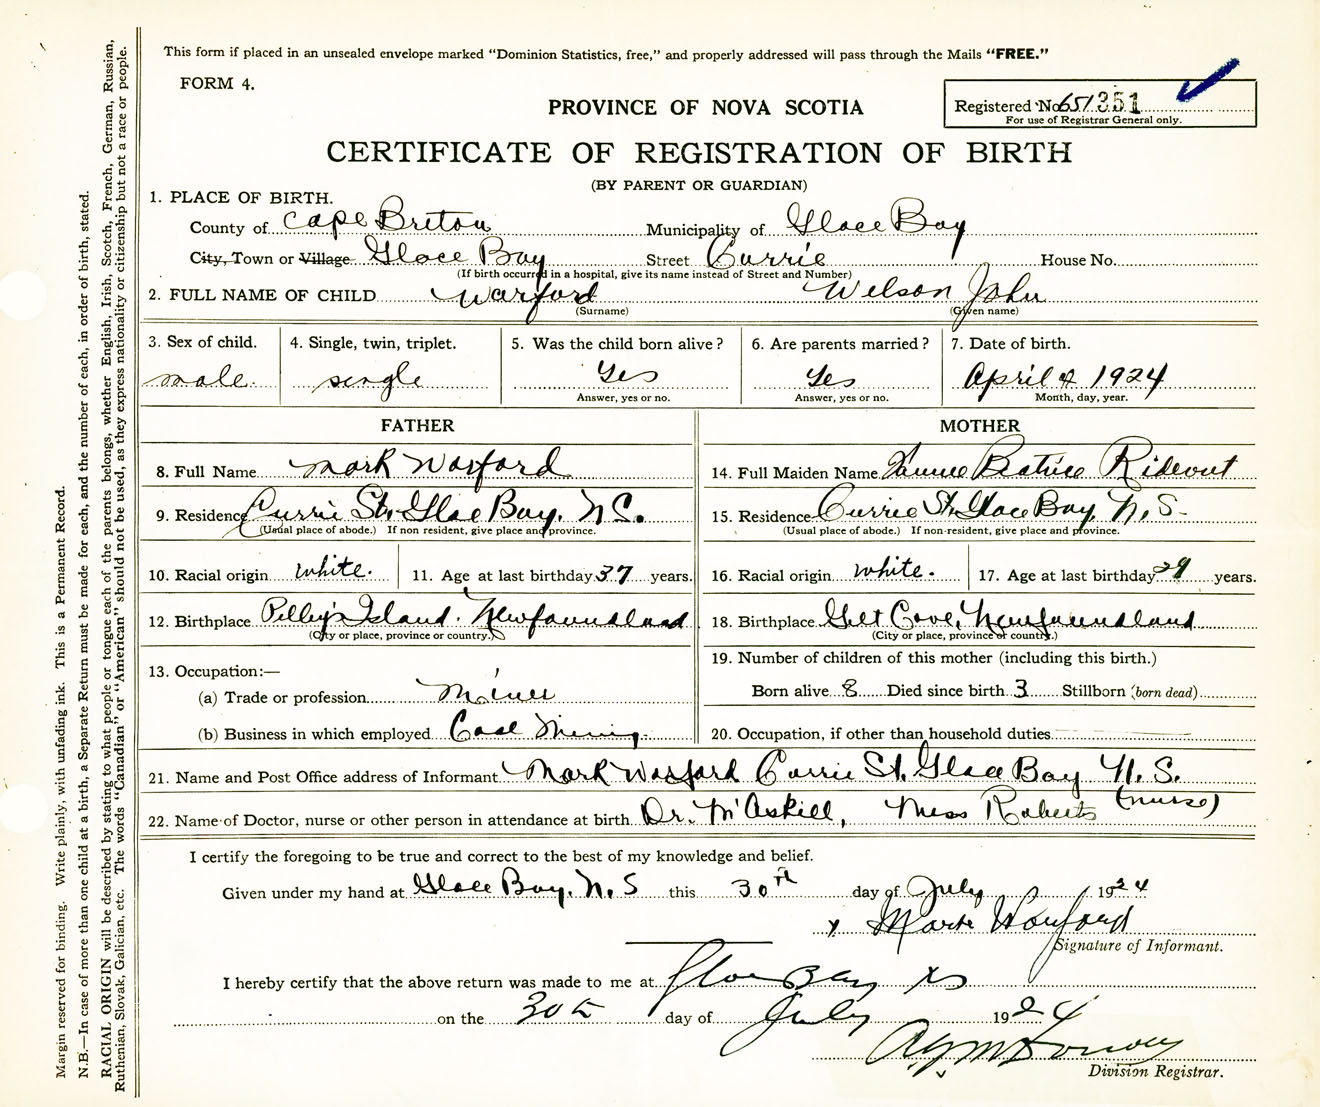 This form if placed in an unsealed envelope marked "Dominion Statistics, free," and properly addressed will pass through the Mails "FREE."
FORM 4.
Registered No. 651351
For use of Registrar General only.
PROVINCE OF NOVA SCOTIA
CERTIFICATE OF REGISTRATION OF BIRTH
(BY PARENT OR GUARDIAN)
1. PLACE OF BIRTH.
County of Cape Breton Municipality of Glace Bay
City, Town or Village Glace Bay Street Currie House No.
(If birth occurred in a hospital, give its name instead of Street and Number)
2. FULL NAME OF CHILD Warford Wilson John
(Surname) (Given name)
3. Sex of child. 4. Single, twin, triplet. 5. Was the child born alive? 6. Are parents married? 7. Date of birth.
male. single Yes Yes April 1924
Answer, yes or no. Answer, yes or no. Month, day, year.
FATHER MOTHER
8. Full Name Mark Warford 14. Full Maiden Name Beatrice Rideout
9. Residence Currie St. Glace Bay. N.S. 15. Residence Currie St. Glace Bay, N.S.
(Usual place of abode.) If non resident, give place and province. (Usual place of abode.) If non-resident, give place and province.
10. Racial origin white. 11. Age at last birthday 37 years. 16. Racial origin white. 17. Age at last birthday 29 years.
12. Birthplace Pilley's Island. Newfoundland 18. Birthplace Gilt Cove, Newfoundland
(City or place, province or country.) (City or place, province or country.)
19. Number of children of this mother (including this birth.)
13. Occupation:—
(a) Trade or profession Miner Born alive 8 Died since birth 3 Stillborn (born dead)
(b) Business in which employed Coal Mining. 20. Occupation, if other than household duties
21. Name and Post Office address of Informant Mark Warford Currie St. Glace Bay N.S.
22. Name of Doctor, nurse or other person in attendance at birth Dr. McAskill, Miss Roberts (nurse)
I certify the foregoing to be true and correct to the best of my knowledge and belief.
Given under my hand at Glace Bay. N.S this 30th day of July 1924
x Mark Warford
Signature of Informant.
I hereby certify that the above return was made to me at Glace Bay NS
on the 30th day of July 1924
Division Registrar.
Margin reserved for binding. Write plainly, with unfading ink. This is a Permanent Record.
N.B.—In case of more than one child at a birth, a Separate Return must be made for each, and the number of each, in order of birth, stated.
RACIAL ORIGIN will be described by stating to what people or tongue each of the parents belongs, whether English, Irish, Scotch, French, German, Russian,
Ruthenian, Slovak, Galician, etc. The words "Canadian" or "American" should not be used, as they express nationality or citizenship but not a race or people.